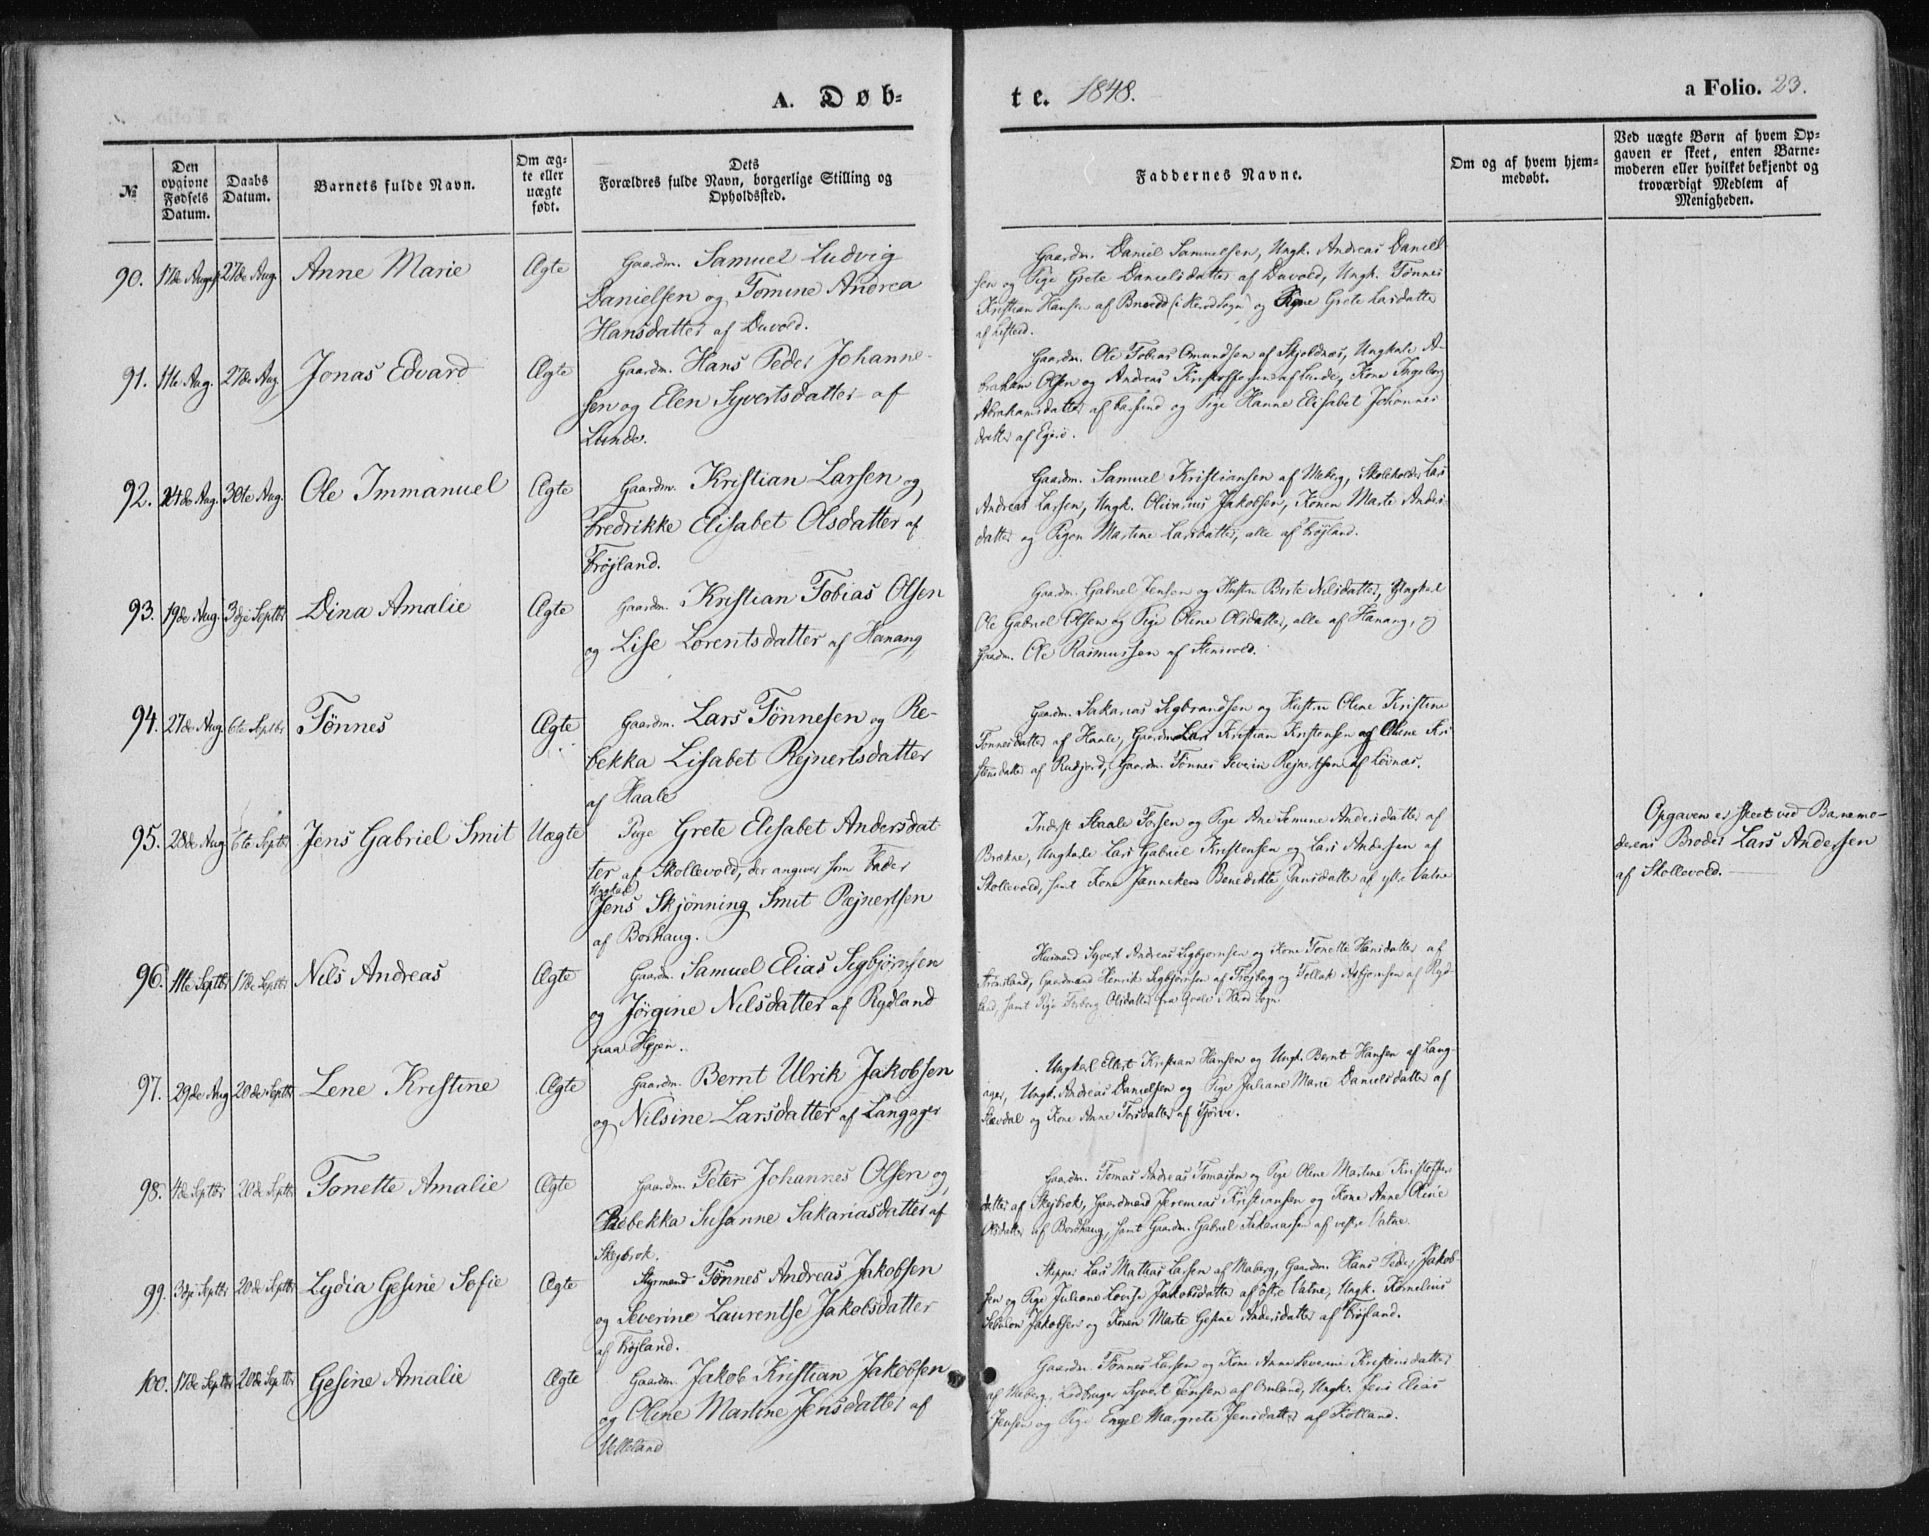 A. Døb=
te. 1848.
a Folio. 23.
№
Den opgivne Fødsels Datum.
Daabs Datum.
Barnets fulde Navn.
Om æg= te eller uægte født.
Dets Forældres fulde Navn, borgerlige Stilling og Opholdssted.
Faddernes Navne.
Om og af hvem hjem= medøbt.
Ved uægte Børn af hvem Op= gaven er skeet, enten Barne= moderen eller hvilket bekjendt og troværdigt Medlem af Menigheden.
90. 17de Aug. 27de Aug. Anne Marie Ægte Gaardm. Samuel Ludvig
Danielsen og Tomine Andrea
Hansdatter af Duvold.
Gaardm. Daniel Samuelsen, Ungk. Andreas Daniel
sen og Pige Grete Danielsdatter af Duvold, Ungk. Tønnes
Kristian Hansen af (i Herred Sogn) og Grete Larsdatter
91. 11te Aug. 27de Aug. Jonas Edvard Ægte Gaardm. Hans Peder Johanne-
sen og Elen Syvertsdatter af
Lunde.
Gaardm. Ole Tobias Omundsen af Skjoldnes, Ungkale A-
braham Olsen og Andreas Kristoffersen af Lunde, Kone Ingeborg
Abrahamsdatter af og Pige Hanne Elisabet Johannes
datter af Egerø.
92. 24de Aug. 30te Aug. Ole Immanuel Ægte Gaardm. Kristian Larsen og
Fredrikke Elisabet Olsdatter af
Frøjland.
Gaardm. Samuel Kristiansen af Meberg, Skoleholder Lars
Andreas Larsen, Ungk. Olivarius Jakobsen, Konen Marte Anders
datter og Pigen Martine Larsdatter, alle af Frøjland.
93. 19de Aug. 3die Septbr Dina Amalie Ægte Gaardm. Kristian Tobias Olsen
og Lise Lorentsdatter af Hanang
Gaardm. Gabriel Jensen og Hustru Berte Nilsdatter, Ungkarl
Ole Gabriel Olsen og Pige Oline Olsdatter, alle af Hanang, og
Gaardm. Ole Rasmussen af Stensvold.
94. 27de Aug. 6te Septbr Tønnes Ægte Gaardm. Lars Tønnesen og Re-
bekka Lisabet Rejnertsdatter
af Haale
Gaardm. Sakarias Sigbrandsen og Hustru Oline Kristine
Tønnesdatter af Haale, Gaardm. Lars Kristian Kristensen og Oline Kri
stensdatter af Rudjord, Gaardm. Tønnes Severin Rejnertsen af Løvnæs.
95. 28de Aug 6te Septbr Jens Gabriel Smit Uægte Pige Grete Elisabet Andersdat
ter af Skollevold, der angiver som Fader
Ungkarl
Jens Skjønning Smit Rejnertsen
af Borhaug.
Inderst Staale Torsen og Pige Ane Semine Andersdatter af
Brekne, Ungkarle Lars Gabriel Kristensen og Lars Andersen af
Skollevold, samt Kone Janneken Benedikte Jansdatter af Vatne
Opgaven er skeet ved Barnemo-
derens Broder Lars Andersen
af Skollevold.
96. 11te Septbr 17de Septbr Nils Andreas Ægte Gaardm. Samuel Elias Sigbjørnsen
og Jørgine Nilsdatter af Rydland
paa Hejen.
Husmand Syvert Andreas Sigbjørnsen og Kone Tonette Hansdatter af
Gaardmand Henrik Sigbjørnsen af Frøjberg og Tollak Asbjørnsen af Ryd-
land, samt Pige Olsdatter fra i Herred Sogn.
97. 29de Aug 20de Septbr Lene Kristine Ægte Gaardm. Bernt Ulrik Jakobsen
og Nilsine Larsdatter af Langager
Ungkarl Ellert Kristian Hansen og Ungk. Bernt Hansen af Lang-
ager, Ungk. Andreas Danielsen og Pige Juliane Marie Danielsdatter af
og Kone Anne Torsdatter af Tjørve.
98. 4de Septbr 20de Septbr Tonette Amalie Ægte Gaardm. Peter Johannes Olsen og
Rebekka Susanne Sakariasdatter af
Skejbrok.
Gaardm. Tomas Andreas Tomassen og Pige Oline Martine Kristoffers
datter af Skejbrok, Gaardmand Jeremias Kristiansen og Kone Anne Oline
Olsdatter af Bordhaug, samt Gaardm. Gabriel Sakariassen af vestre Vatne.
99. 3die Septbr 20de Septbr Lydia Gesine Sofie Ægte Styrmand Tønnes Andreas Jakobsen
og Severine Laurentse Jakobsdatter
af Frøjland.
Skipper Lars Mathias Larsen af Maberg, Gaardm. Hans Peder Jakob-
sen og Pige Juliane Lovise Jakobsdatter af østre Vatne, Ungk. Kornelius
Sebulon Jakobsen og Konen Marte Gesine Andersdatter af Frøjland.
100. 17de Septbr 20de Septbr Gesine Amalie Ægte Gaardm. Jakob Kristian Jakobsen
og Oline Martine Jensdatter af
Ulleland
Gaardm. Tønnes Larsen og Kone Anne Severine Kristensdatter
af Meberg, Ladbruger Syvert Jensen af Omland, Ungk. Jens Elias
Jensen og Pige Engel Margrete Jensdatter af Kolland.